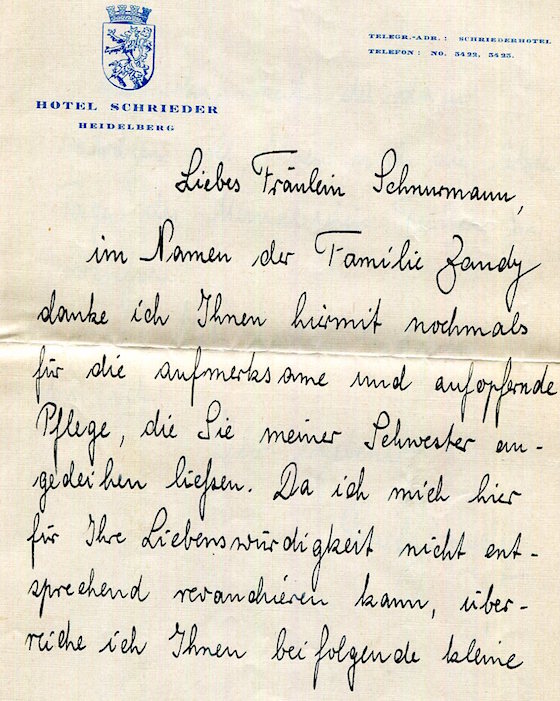 TELEGR.-ADR.: SCHRIEDERHOTEL
TELEFON: NO. 5422, 5423.
HOTEL SCHRIEDER
HEIDELBERG
Liebes Fräulein Schnurmann,
im Namen der Familie Zandy
danke ich Ihnen hiermit nochmals
für die aufmerksame und aufopfernde
Pflege, die Sie meiner Schwester an-
gedeihen liessen. Da ich mich hier
für Ihre Liebenswürdigkeit nicht ent-
sprechend revanchieren kann, über-
reiche ich Ihnen beifolgende kleine